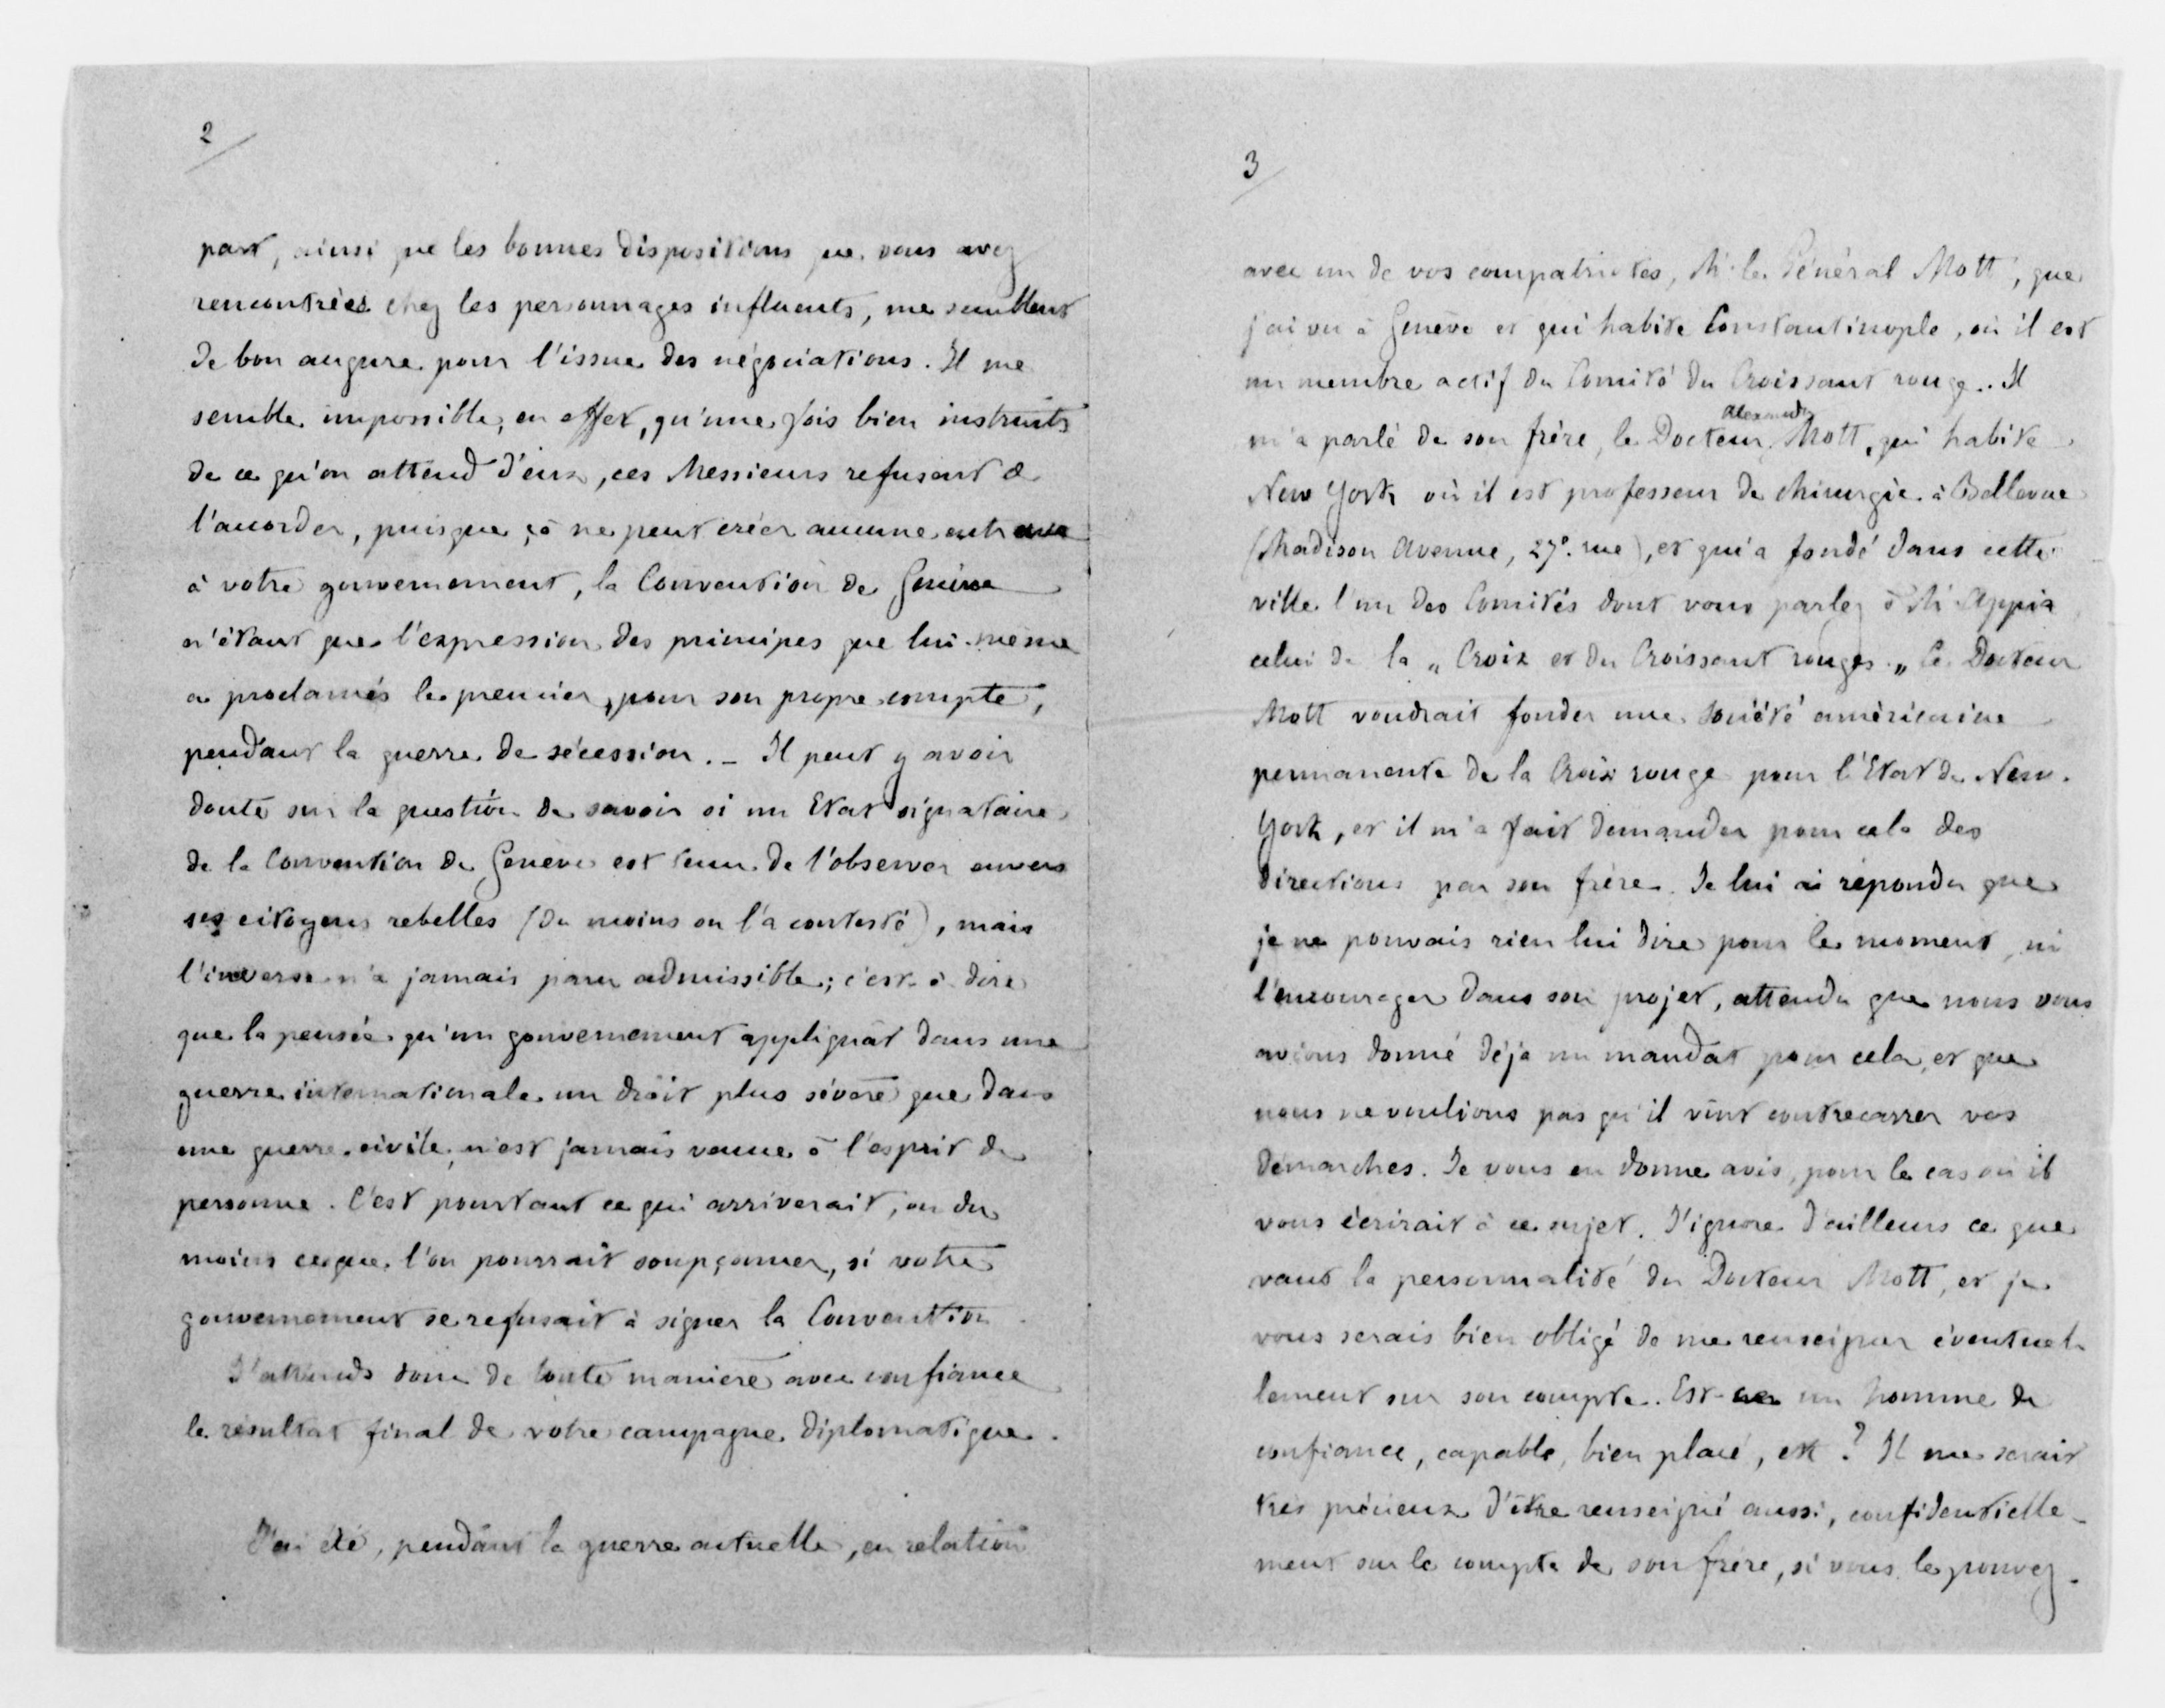 2
part, ainsi que les bonnes dispositions que vous avez
rencontrées chez les personnages influents, me semblent
de bon augure pour l'issue des négociations. Il me
semble impossible, en effet, qu'une fois bien instruits
de ce qu'on attend d'eux, ces Messieurs refusent de
l'accorder, puisque çà ne peut créer aucune entrave
à votre gouvernement, la Convention de Genève
n'étant que l'expression des principes que lui-même
a proclamés le premier, pour son propre compte,
pendant la guerre de sécession. – Il peut y avoir
doute sur la question de savoir si un Etat signataire
de la Convention de Genève est tenu de l'observer envers
ses citoyens rebelles (du moins on l'a contesté), mais
l'inverse n'a jamais paru admissible; c'est-à-dire
que la pensée qu'un gouvernement appliquât dans une
guerre internationale un droit plus sévère que dans
une guerre civile, n'est jamais venue à l'esprit de
personne. C'est pourtant ce qui arriverait, ou du
moins ce que l'on pourrait soupçonner, si votre
gouvernement se refusait à signer la Convention.
J'attends donc de toute manière avec confiance
le résultat final de votre campagne diplomatique.
J'ai été, pendant la guerre actuelle, en relation
3
avec un de vos compatriotes, Mr le Général Mott, que
j'ai vu à Genève et qui habite Constantinople, où il est
un membre actif du Comité du Croissant rouge. Il
m'a parlé de son frère, le Docteur Alexander Mott, qui habite
New York où il est professeur de chirurgie à Bellevue
(Madison Avenue, 27e. rue), et qui a fondé dans cette
ville l'un des Comités dont vous parlez à Mr Appia
celui de la „Croix et du Croissant rouges.„ Ce Docteur
Mott voudrait fonder une société américaine
permanente de la Croix rouge pour l'Etat de New-
York, et il m'a fait demander pour cela des
directions par son frère. Je lui ai répondu que
je ne pouvais rien lui dire pour le moment, ni
l'encourager dans son projet, attendu que nous vous
avions donné déjà un mandat pour cela, et que
nous ne voulions pas qu'il vînt contrecarrer vos
démarches. Je vous en donne avis, pour le cas où il
vous écrirait à ce sujet. J'ignore d'ailleurs ce que
vaut la personnalité du Docteur Mott, et je
vous serais bien obligé de me renseigner éventuel-
lement sur son compte. Est-ce un homme de
confiance, capable, bien placé, etc? Il me serait
très précieux d'être renseigné aussi, confidentielle-
ment sur le compte de son frère, si vous le pouvez.